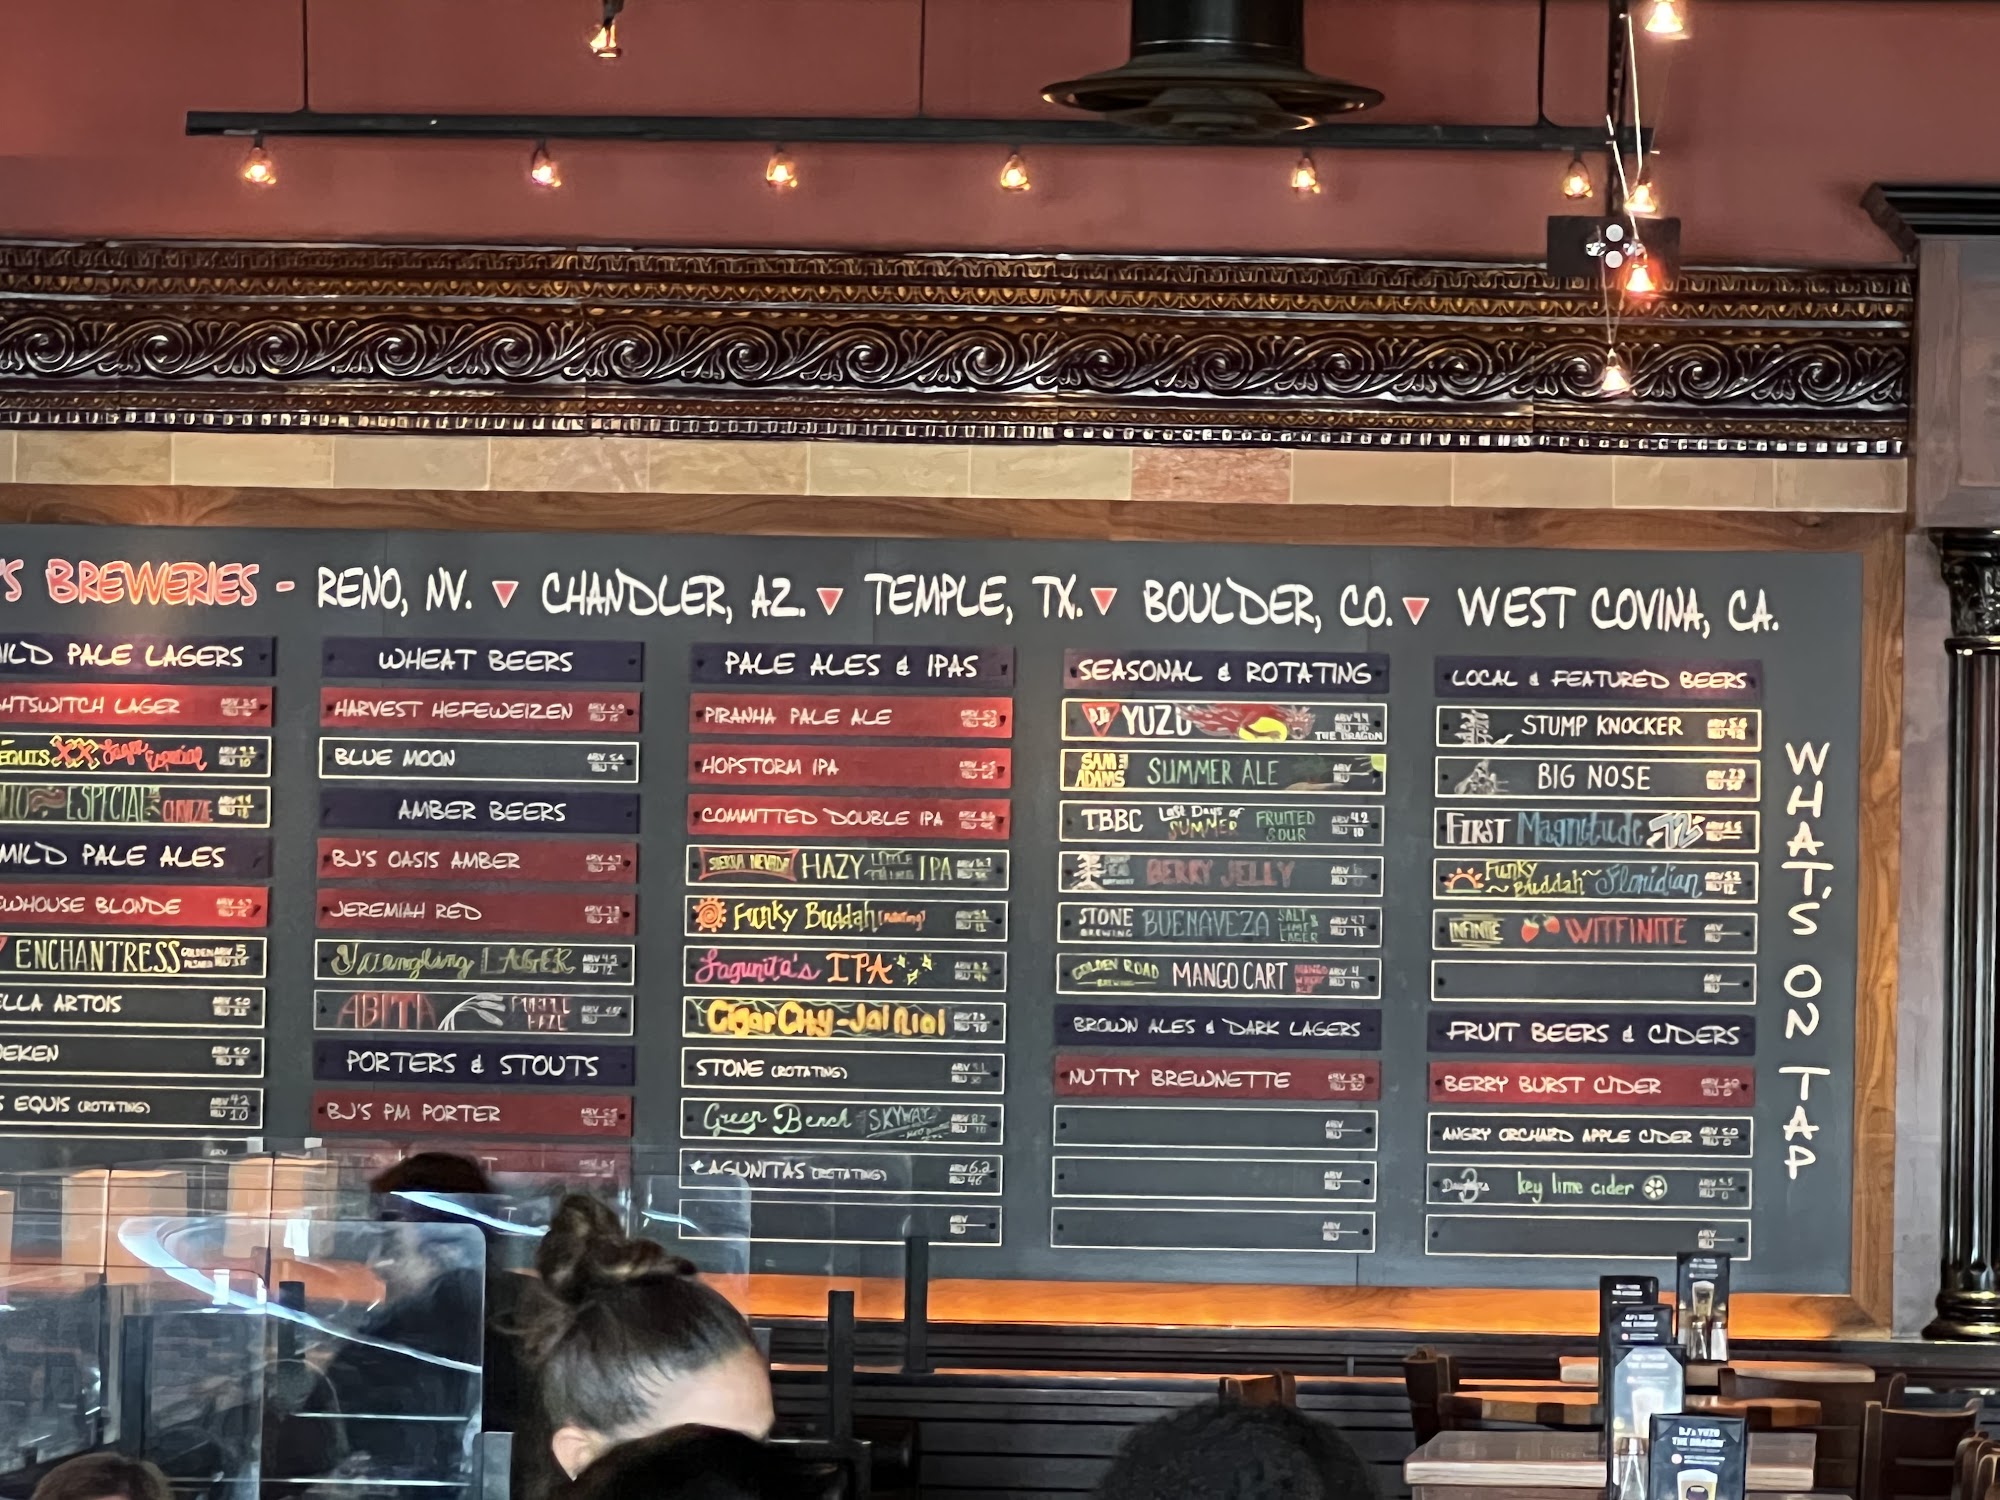 'S BREWERIES - RENO, NV. ▼ CHANDLER, AZ. ▼ TEMPLE, TX. ▼ BOULDER, CO. ▼ WEST COVINA, CA.
ILD PALE LAGERS
HTSWITCH LAGER
EQUIS
ESPECIAL
MILD PALE ALES
EWHOUSE BLONDE
ENCHANTRESS ABV 5
LLA ARTOIS ABV 5.0
EKEN ABV 5.0
S EQUIS (ROTATING) ABV 4.2
IBU 10
WHEAT BEERS
HARVEST HEFEWEIZEN
BLUE MOON
AMBER BEERS
BJ'S OASIS AMBER
JEREMIAH RED
Yuengling LAGER
ABITA PURPLE
HAZE
PORTERS & STOUTS
BJ'S PM PORTER
PALE ALES & IPAS
PIRANHA PALE ALE
HOPSTORM IPA
COMMITTED DOUBLE IPA
SIERRA NEVADA HAZY LITTLE THING IPA
Funky Buddah (rotating)
Lagunita's IPA
Cigar City - Jai Alai
STONE (ROTATING)
Green Bench SKYWAY
LAGUNITAS (ROTATING) ABV 6.2
IBU 46
ABV
IBU
SEASONAL & ROTATING
BJ'S YUZU
THE DRAGON
SAM ADAMS SUMMER ALE ABV
IBU
TBBC Last Days of SUMMER FRUITED SOUR ABV 4.2
IBU 10
BERRY JELLY
STONE BREWING BUENAVEZA SALT & LIME LAGER ABV 4.7
GOLDEN ROAD BREWING MANGO CART MANGO WHEAT ALE ABV 4
IBU 10
BROWN ALES & DARK LAGERS
NUTTY BREWNETTE
ABV
IBU
ABV
IBU
ABV
IBU
LOCAL & FEATURED BEERS
STUMP KNOCKER
BIG NOSE
FIRST Magnitude 72
Funky Buddah Floridian ABV 5.2
IBU 12
INFINITE WITFINITE ABV
IBU
ABV
IBU
FRUIT BEERS & CIDERS
BERRY BURST CIDER
ANGRY ORCHARD APPLE CIDER ABV 5.0
IBU 0
3 Daughters key lime cider ABV 5.5
IBU 0
ABV
IBU
WHAT'S ON TAP
BJ's YUZU
THE DRAGON